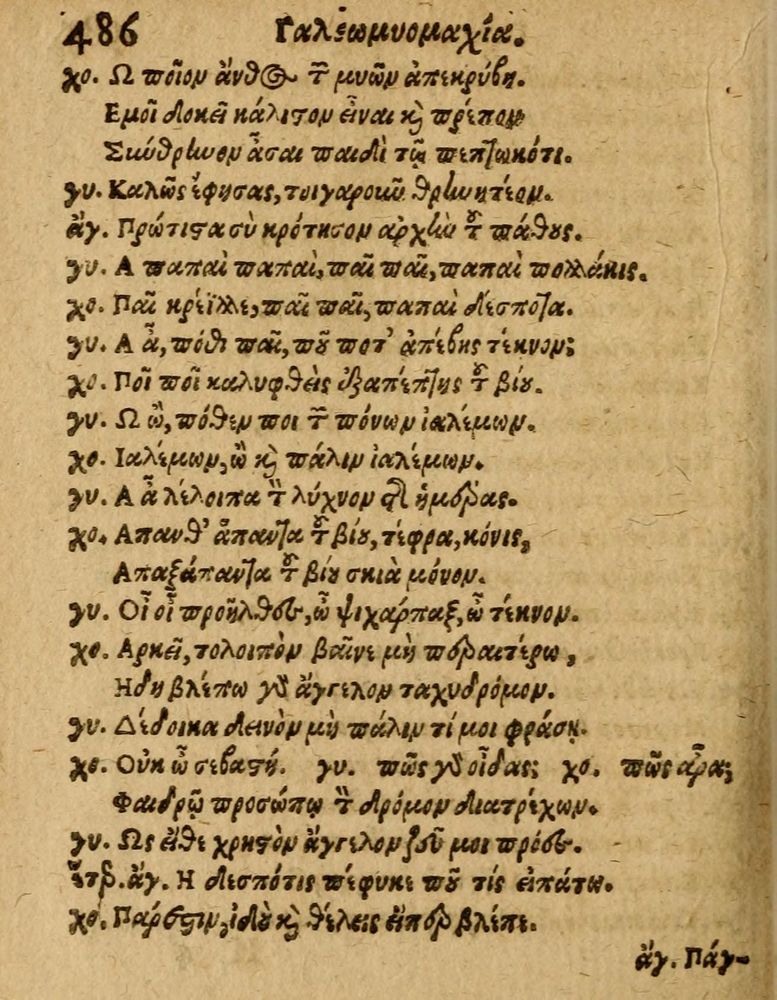 486 Γαλεωμυομαχία.
χο. Ω ποῖον ἄνθος τῶν μυῶν ἀπεκρύβη.
Εμοὶ δοκεῖ κάλιστον εἶναι καὶ πρέπον
Σκύθρωνον ᾆσαι παιδὶ τῷ πεπτωκότι.
γυ. Καλῶς ἔφησας, τοιγαροῦν θρηνητέον.
ἄγ. Πρώτιστα σὺ κρότησον ἀρχὴν τοῦ πάθους.
γυ. Α παπαὶ παπαὶ, παῖ παῖ, παπαὶ πολλάκις.
χο. Παῖ κρείϊλλε, παῖ παῖ, παπαὶ δέσποτα.
γυ. Α ἆ, πόθι παῖ, ποῦ ποτ' ἀπέβης τέκνον;
χο. Ποῖ ποῖ καλυφθεὶς ἐξαπέπτης τοῦ βίου.
γυ. Ω ὢ, πόθεν ποι τῶν πόνων ἰαλέμων.
χο. Ιαλέμων, ὢ καὶ πάλιν ἰαλέμων.
γυ. Α ἆ λέλοιπα τὸν λύχνον τῆς ἡμέρας.
χο. Απανθ' ἅπαντα τοῦ βίου, τέφρα, κόνις,
Απαξάπαντα τοῦ βίου σκιὰ μόνον.
γυ. Οἶ οἶ προῆλθες, ὦ ψιχάρπαξ, ὦ τέκνον.
χο. Αρκεῖ, τολοιπὸν βαῖνε μὴ περαιτέρω,
Ηδη βλέπω γὰρ ἄγγελον ταχυδρόμον.
γυ. Δέδοικα δεινὸν μὴ πάλιν τί μοι φράσῃ.
χο. Οὐκ ὦ σεβαστή. γυ. πῶς γὰρ οἶδας; χο. πῶς ἆρα;
Φαιδρῷ προσώπῳ τὸν δρόμον διατρέχων.
γυ. Ως εἴθε χρηστὸν ἄγγελον ζοῦν μοι πρόες.
ἕτερ. ἄγ. Η δεσπότις πέφυκε ποῦ τίς εἰπάτω.
χο. Πάρεστιν, ἰδοὺ καὶ θέλεις εἴπερ βλέπε.
ἄγ. Πάγ-